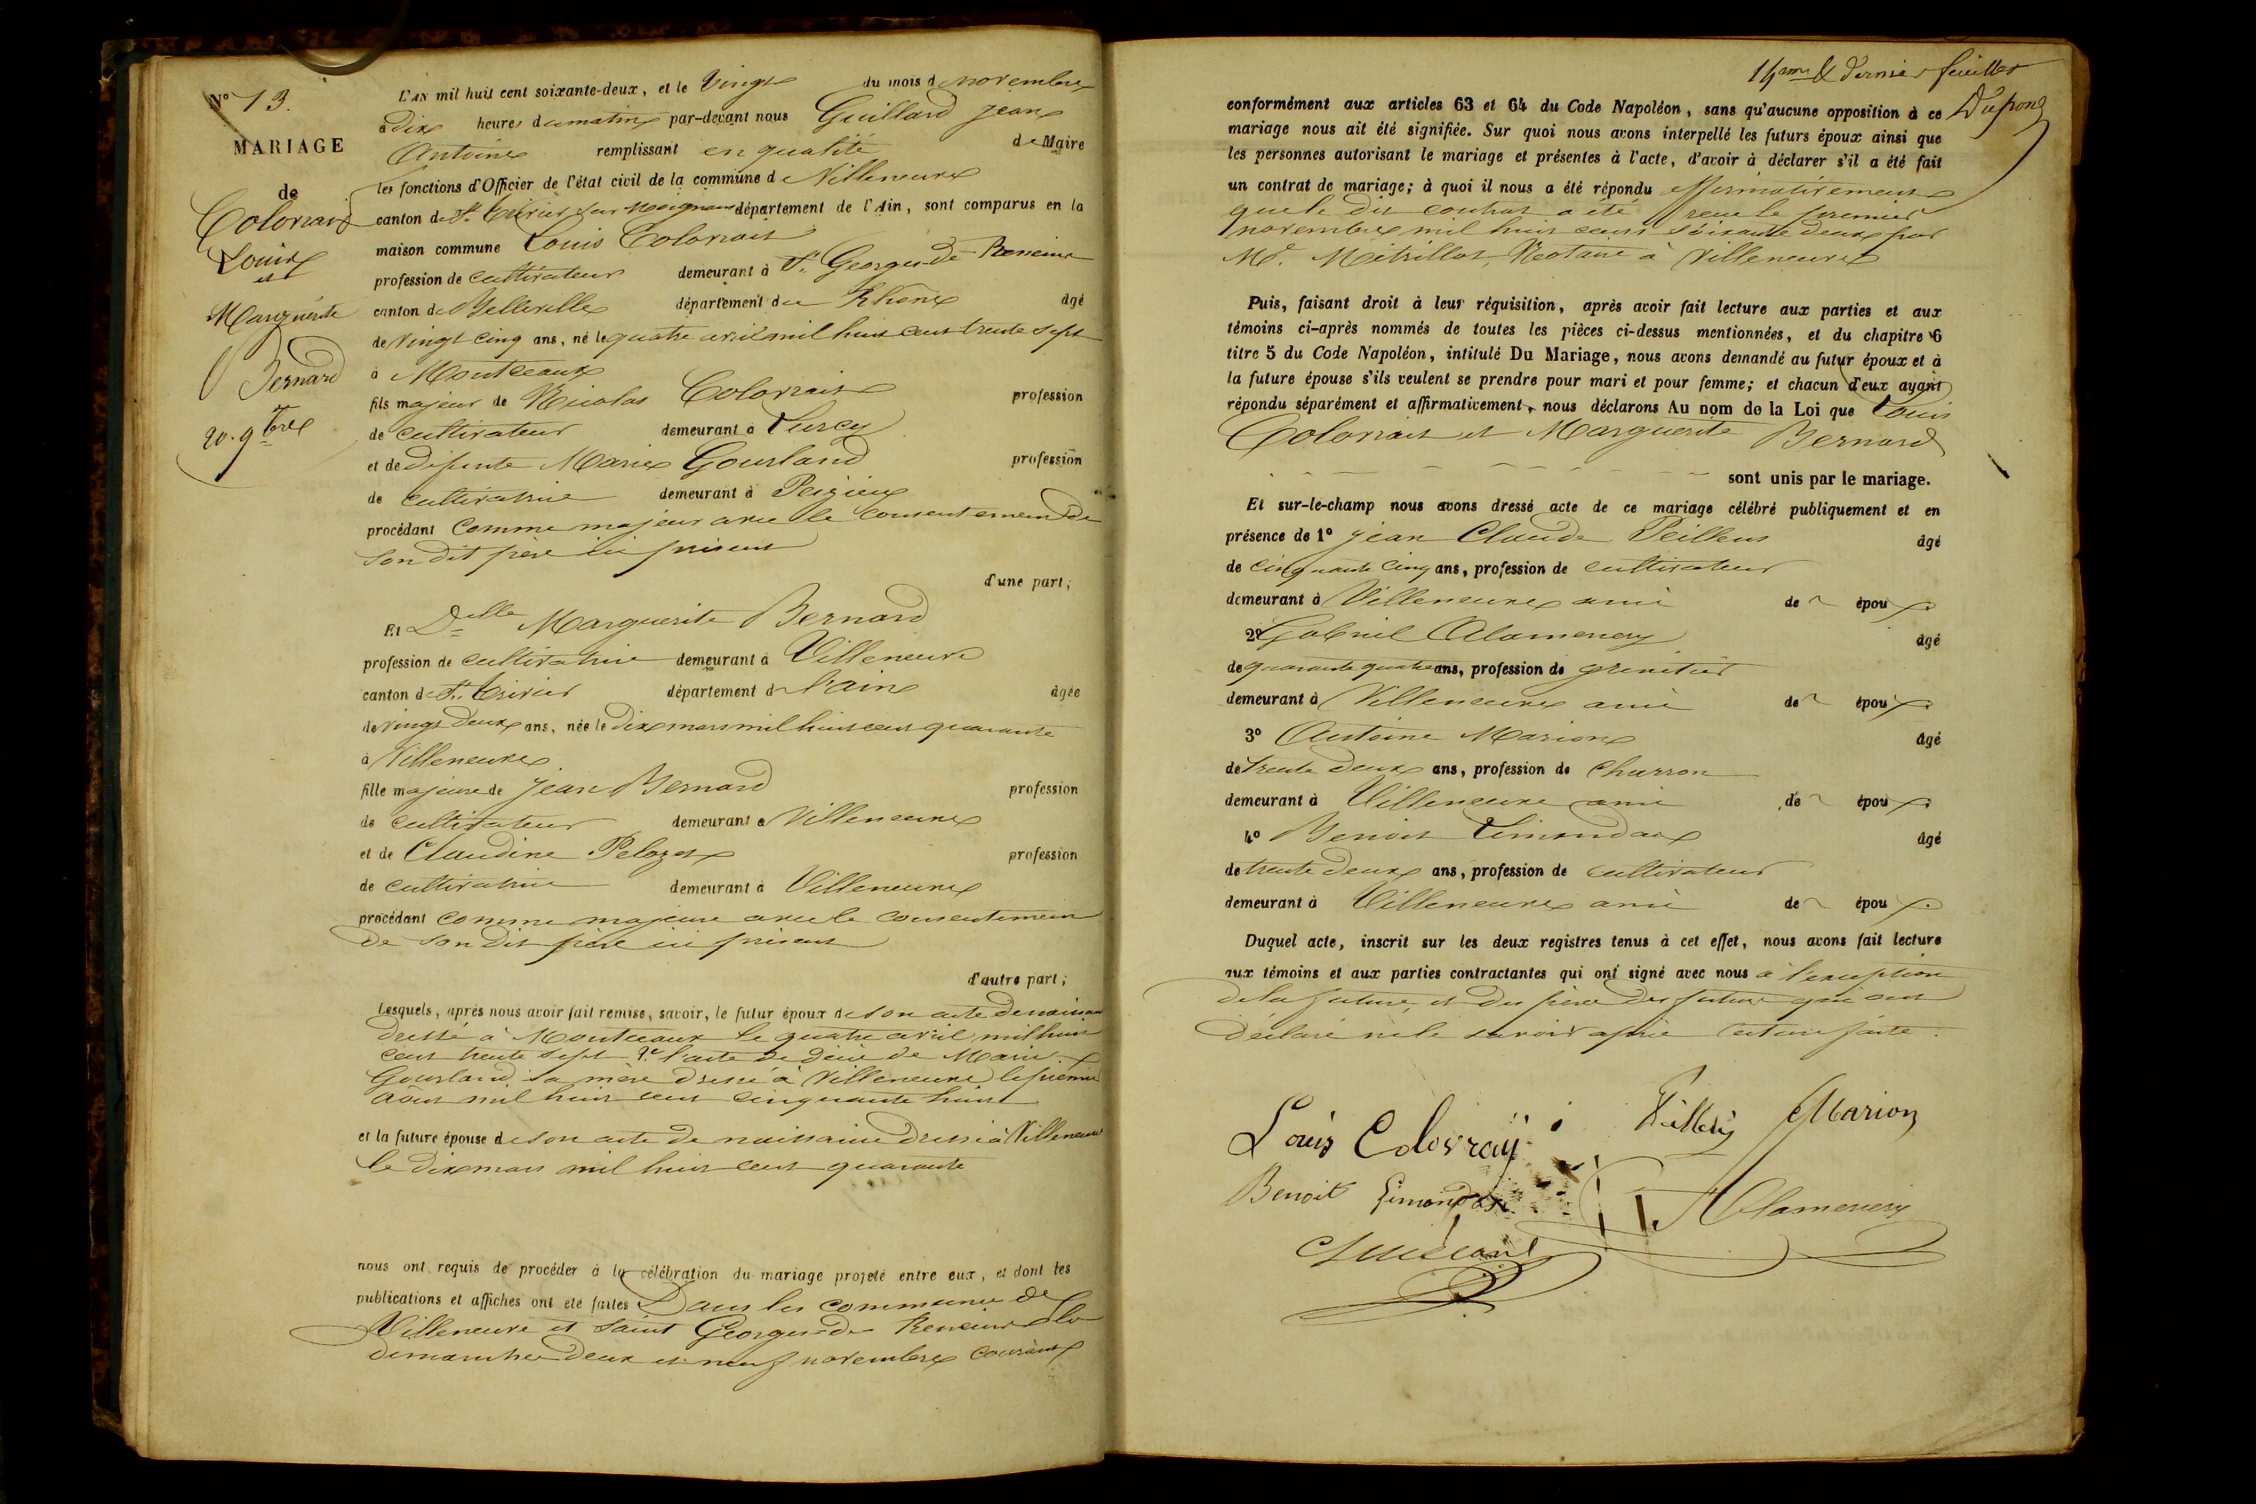 N° 13.
MARIAGE
de
Colovrait
Louis
et
Marguerite
Bernard
20. 9bre
L'AN mil huit cent soixante-deux, et le Vingt du mois d novembre
à dix heures du matin par-devant nous Guillard jean
Antoine remplissant en qualité de Maire
les fonctions d'Officier de l'état civil de la commune de Villeneuve
canton de St. Trivier sur Moignans département de l'Ain, sont comparus en la
maison commune Louis Colovrait
profession de cultivateur demeurant à St. Georges de Reneins
canton de Belleville département du Rhône âgé
de vingt cinq ans, né le quatre avril mil huit cent trente sept
à Montceaux
fils majeur de Nicolas Colovrait profession
de cultivateur demeurant à Lurcy
et de défunte Marie Gourland profession
de cultivatrice demeurant à Peizieux
procédant comme majeur avec le consentement de
son dit père ici présent
d'une part;
Et Delle Marguerite Bernard
profession de cultivatrice demeurant à Villeneuve
canton de St. Trivier département de l'ain âgée
de vingt deux ans, née le dix mars mil huit cent quarante
à Villeneuve
fille majeure de jean Bernard profession
de cultivateur demeurant à Villeneuve
et de Claudine Pelozet profession
de cultivatrice demeurant à Villeneuve
procédant comme majeure avec le consentement
de son dit père ici présent
d'autre part;
Lesquels, après nous avoir fait remise, savoir, le futur époux de son acte de naissance
dressé à Montceaux le quatre avril mil huit
cent trente sept 2° l'acte de décès de Marie
Gourland sa mère dressé à Villeneuve le premier
août mil huit cent cinquante huit
et la future épouse de son acte de naissance dressé à Villeneuve
le dix mars mil huit cent quarante
nous ont requis de procéder à la célébration du mariage projeté entre eux, et dont les
publications et affiches ont été faites Dans les communes de
Villeneuve et saint Georges de Reneins les
dimanches deux et neuf novembre courant
14me & dernier feuillet
Dupong
conformément aux articles 63 et 64 du Code Napoléon, sans qu'aucune opposition à ce
mariage nous ait été signifiée. Sur quoi nous avons interpellé les futurs époux ainsi que
les personnes autorisant le mariage et présentes à l'acte, d'avoir à déclarer s'il a été fait
un contrat de mariage; à quoi il nous a été répondu affirmativement
que le dit contrat a été reçu le premier
novembre mil huit cent soixante deux par
Me. Mitrillot, Notaire à Villeneuve
Puis, faisant droit à leur réquisition, après avoir fait lecture aux parties et aux
témoins ci-après nommés de toutes les pièces ci-dessus mentionnées, et du chapitre 6
titre 5 du Code Napoléon, intitulé Du Mariage, nous avons demandé au futur époux et à
la future épouse s'ils veulent se prendre pour mari et pour femme; et chacun d'eux ayant
répondu séparément et affirmativement, nous déclarons Au nom de la Loi que Louis
Colovrait et Marguerite Bernard
sont unis par le mariage.
Et sur-le-champ nous avons dressé acte de ce mariage célébré publiquement et en
présence de 1° jean Claude Peilleus âgé
de cinquante cinq ans, profession de cultivateur
demeurant à Villeneuve ami de époux.
2° Gabriel Alamenery âgé
de quarante quatre ans, profession de grenetier
demeurant à Villeneuve ami de époux.
3° Antoine Marion âgé
de trente deux ans, profession de charron
demeurant à Villeneuve ami de époux.
4° Benoit Limandax âgé
de trente deux ans, profession de cultivateur
demeurant à Villeneuve ami de époux.
Duquel acte, inscrit sur les deux registres tenus à cet effet, nous avons fait lecture
aux témoins et aux parties contractantes qui ont signé avec nous à l'exception
de la future, et des pères des futurs qui ont
déclaré ne le savoir après lecture faite.
Louis Colovray Marion
Benoit Limandax Alamenery
Guillard